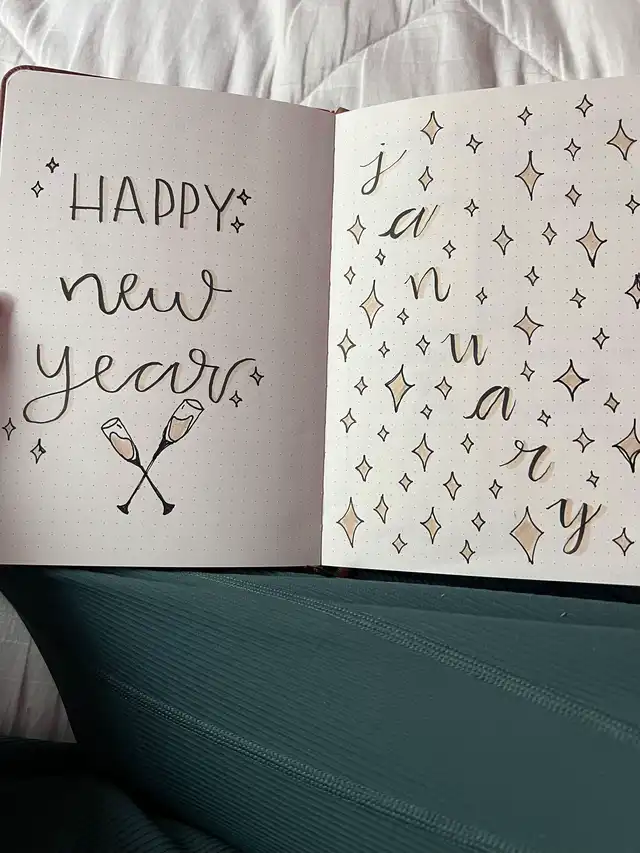 HAPPY
new
year
january